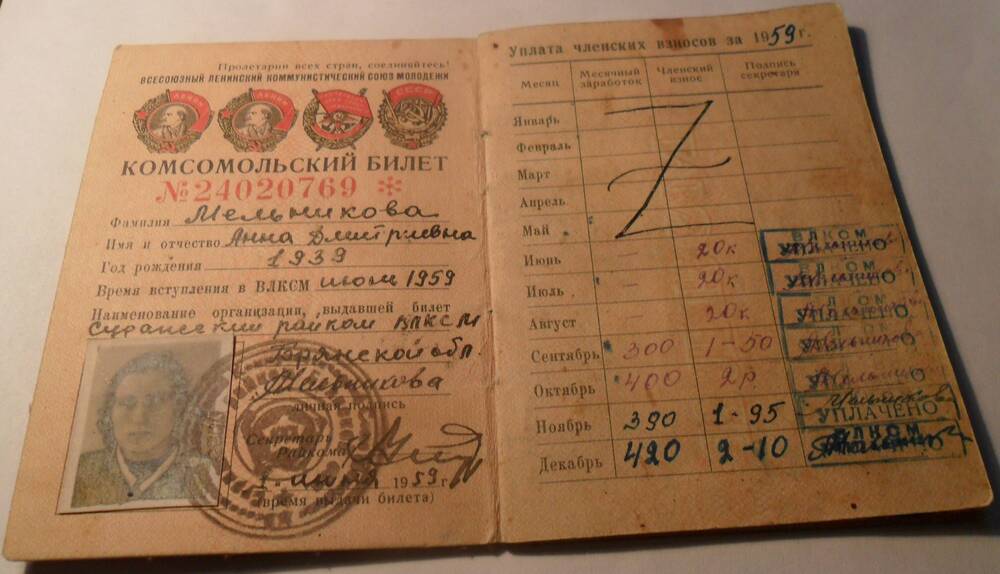 Пролетарии всех стран, соединяйтесь!
ВСЕСОЮЗНЫЙ ЛЕНИНСКИЙ КОММУНИСТИЧЕСКИЙ СОЮЗ МОЛОДЕЖИ
КОМСОМОЛЬСКИЙ БИЛЕТ
№24020769
Фамилия Мельникова
Имя и отчество Анна Дмитриевна
Год рождения 1939
Время вступления в ВЛКСМ июнь 1959
Наименование организации, выдавшей билет
райком ВЛКСМ
Брянской обл.
Мельникова
личная подпись
Секретарь
Райкома
1959 г.
(время выдачи билета)
Уплата членских взносов за 1959 г.
Месяц Месячный заработок Членский взнос Подпись секретаря
Январь
Февраль
Март
Апрель
Май
Июнь — 20к УПЛАЧЕНО
Июль — 20к УПЛАЧЕНО
Август — 20к УПЛАЧЕНО
Сентябрь 300 1-50
Октябрь 400 2р
Ноябрь 390 1-95 УПЛАЧЕНО
Декабрь 420 2-10